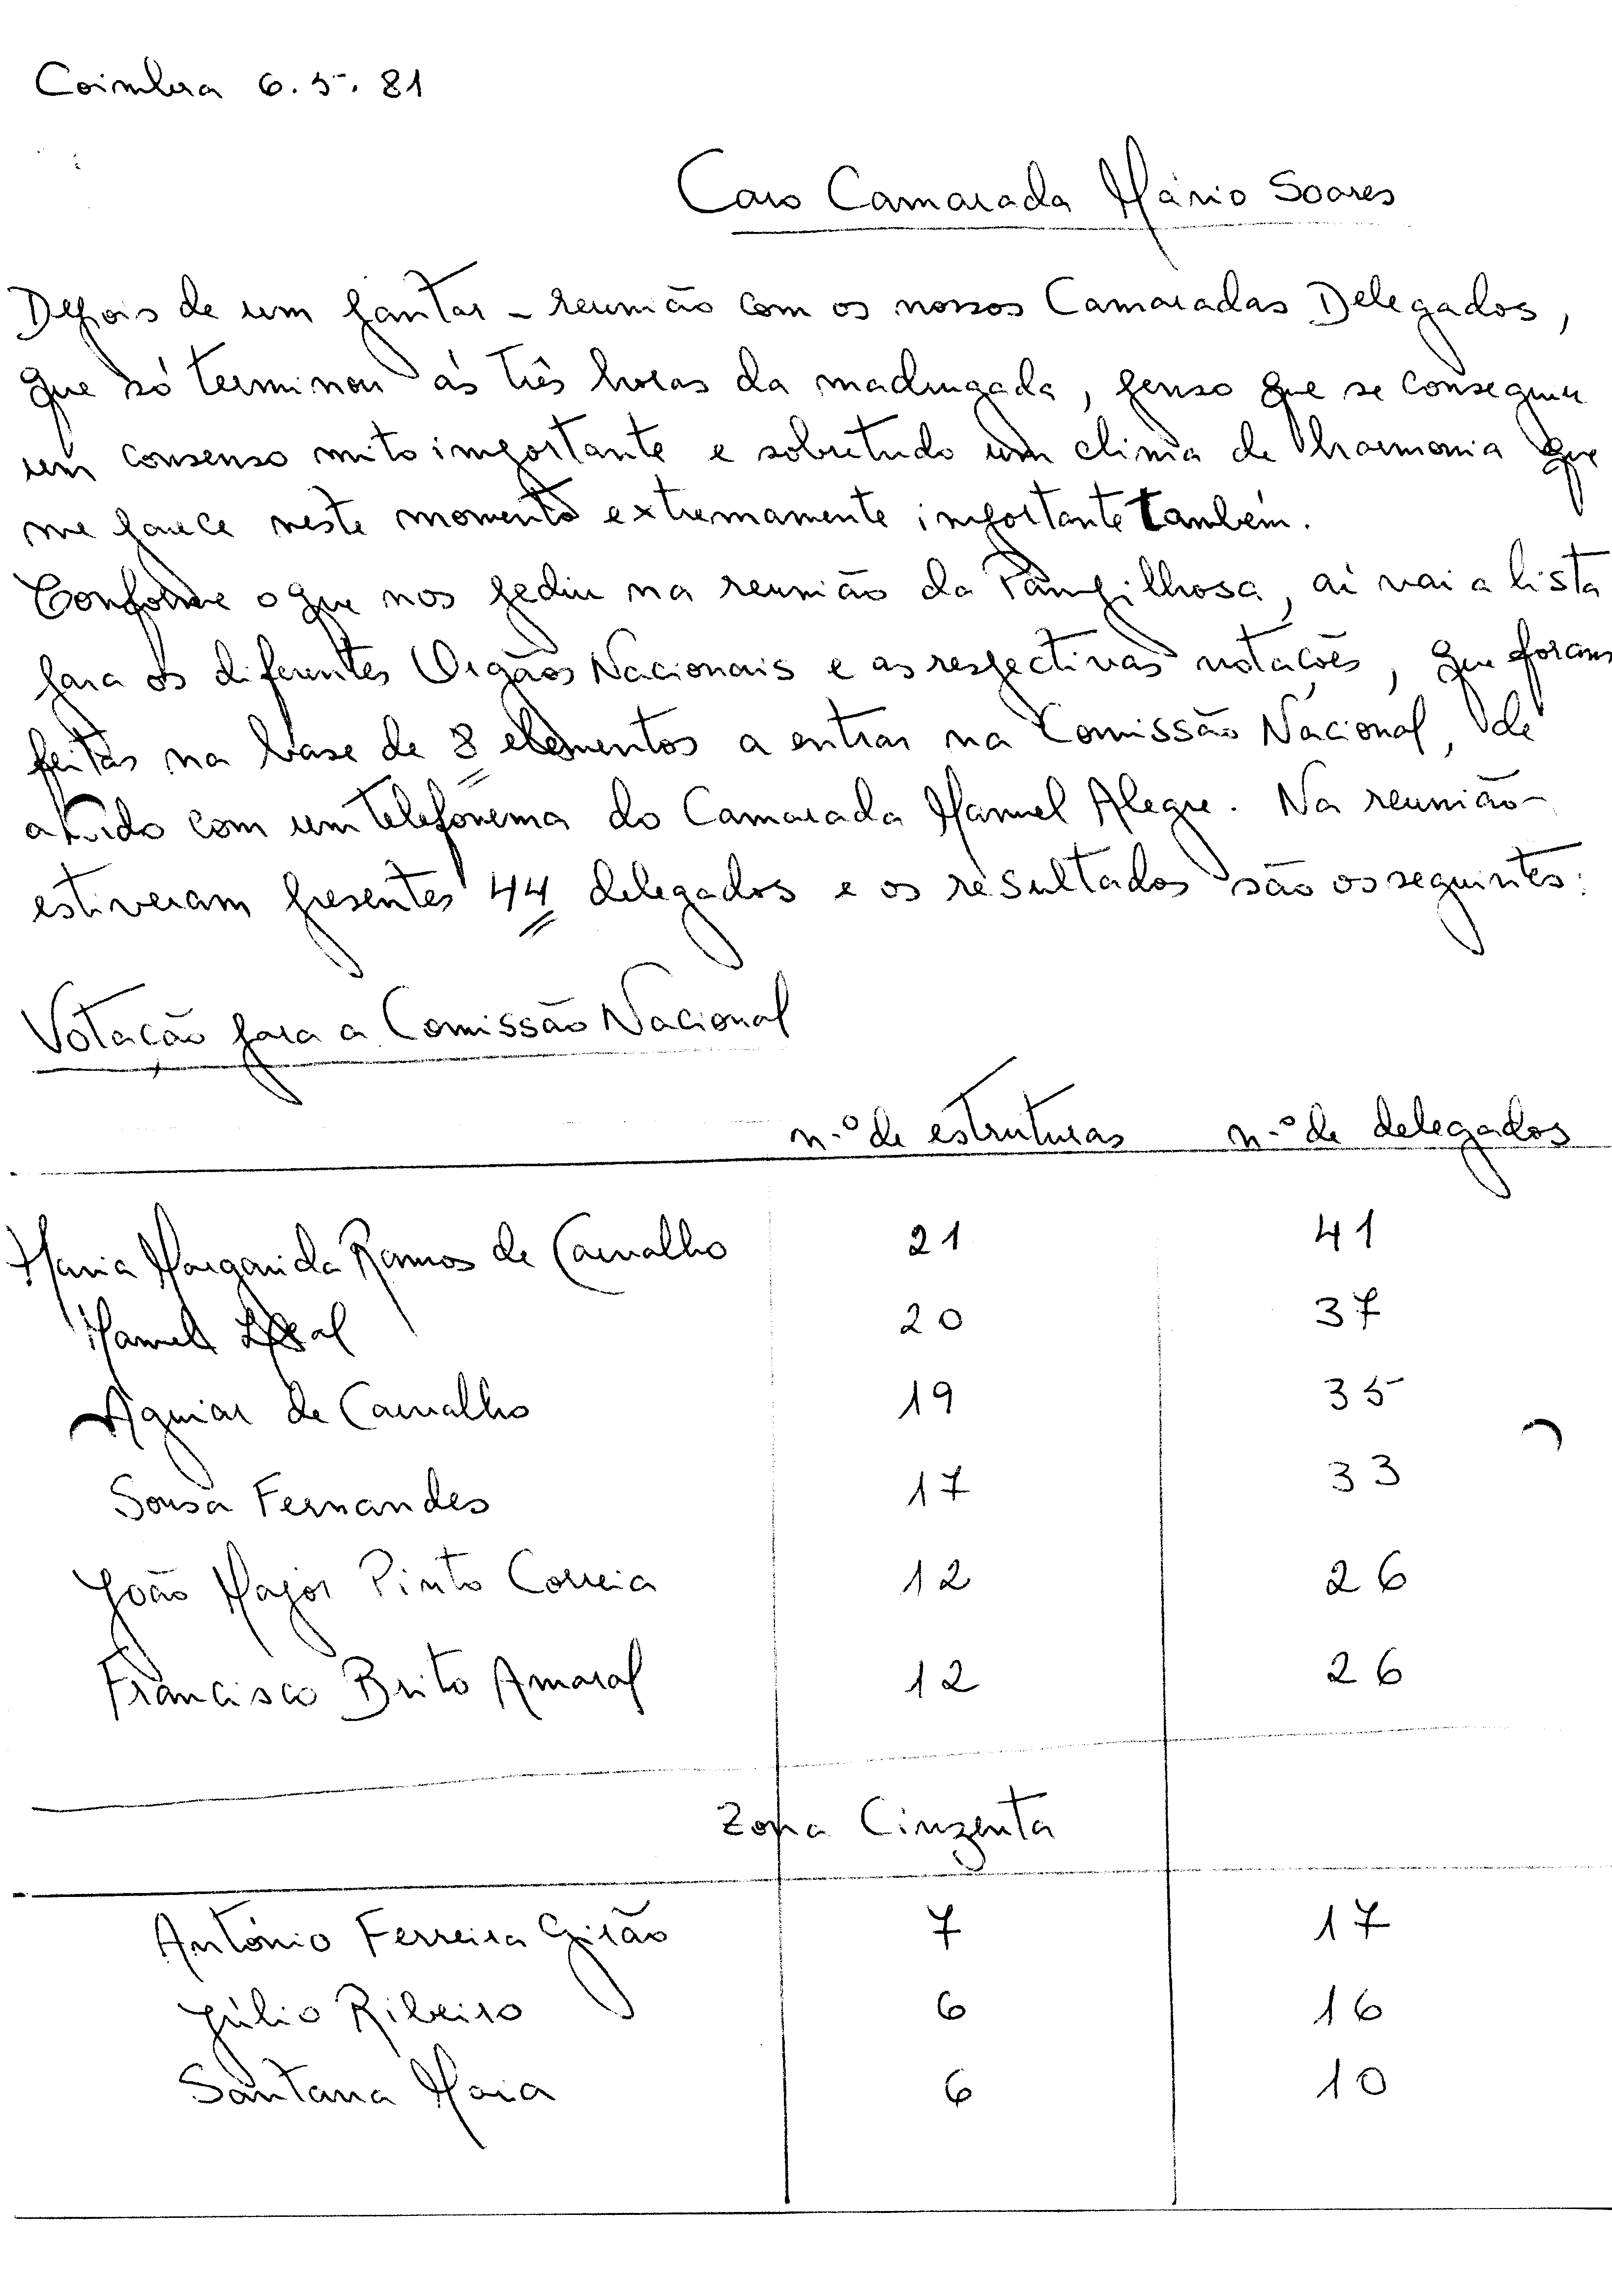 Coimbra 6.5.81
Caro Camarada Mário Soares
Depois de um jantar - reunião com os nossos Camaradas Delegados,
que só terminou às três horas da madrugada, penso que se conseguiu
um consenso mito importante e sobretudo um clima de harmonia que
me parece neste momento extremamente importante também.
Conforme o que nos pediu na reunião da Pampilhosa, aí vai a lista
para os diferentes Orgãos Nacionais e as respectivas votações, que foram
feitas na base de 8 elementos a entrar na Comissão Nacional, de
acordo com um telefonema do Camarada Manuel Alegre. Na reunião
estiveram presentes 44 delegados e os resultados são os seguintes:
Votação para a Comissão Nacional
n.º de estruturas n.º de delegados
Maria Margarida Ramos de Carvalho 21 41
Manuel Leal 20 37
Aguiar de Carvalho 19 35
Sousa Fernandes 17 33
João Major Pinto Correia 12 26
Francisco Brito Amaral 12 26
Zona Cinzenta
António Ferreira Girão 7 17
Júlio Ribeiro 6 16
Santana Maia 6 10